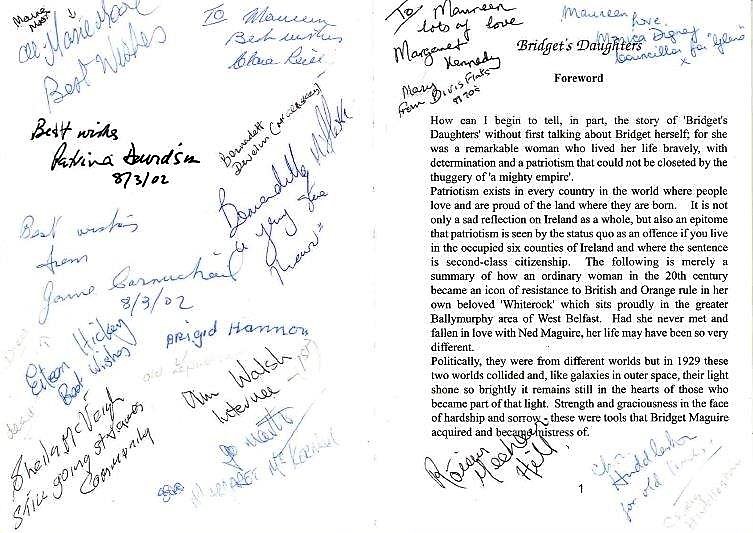 Marie Moore
Best Wishes
To Maureen
Best wishes
Clare
Best wishes
Patrina Davidson
8/3/02
Bernadett
Devlin (McAliskey)
Bernardette McAliskey
Best wishes
from
8/3/02
Eileen Hickey
Best Wishes
Brigid Hannon
Jim Walsh
Internee
Sheila McVeigh
Still going st James
Community
Margaret
To Maureen
lots of love
Margaret
Kennedy
Mary
from Divis Flats
Maureen
Love.
Monica Digney
Councillor for
x
Bridget's Daughters
Foreword
How can I begin to tell, in part, the story of 'Bridget's
Daughters' without first talking about Bridget herself; for she
was a remarkable woman who lived her life bravely, with
determination and a patriotism that could not be closeted by the
thuggery of 'a mighty empire'.
Patriotism exists in every country in the world where people
love and are proud of the land where they are born. It is not
only a sad reflection on Ireland as a whole, but also an epitome
that patriotism is seen by the status quo as an offence if you live
in the occupied six counties of Ireland and where the sentence
is second-class citizenship. The following is merely a
summary of how an ordinary woman in the 20th century
became an icon of resistance to British and Orange rule in her
own beloved 'Whiterock' which sits proudly in the greater
Ballymurphy area of West Belfast. Had she never met and
fallen in love with Ned Maguire, her life may have been so very
different.
Politically, they were from different worlds but in 1929 these
two worlds collided and, like galaxies in outer space, their light
shone so brightly it remains still in the hearts of those who
became part of that light. Strength and graciousness in the face
of hardship and sorrow - these were tools that Bridget Maguire
acquired and became mistress of.
Huddleston
for old times,
1